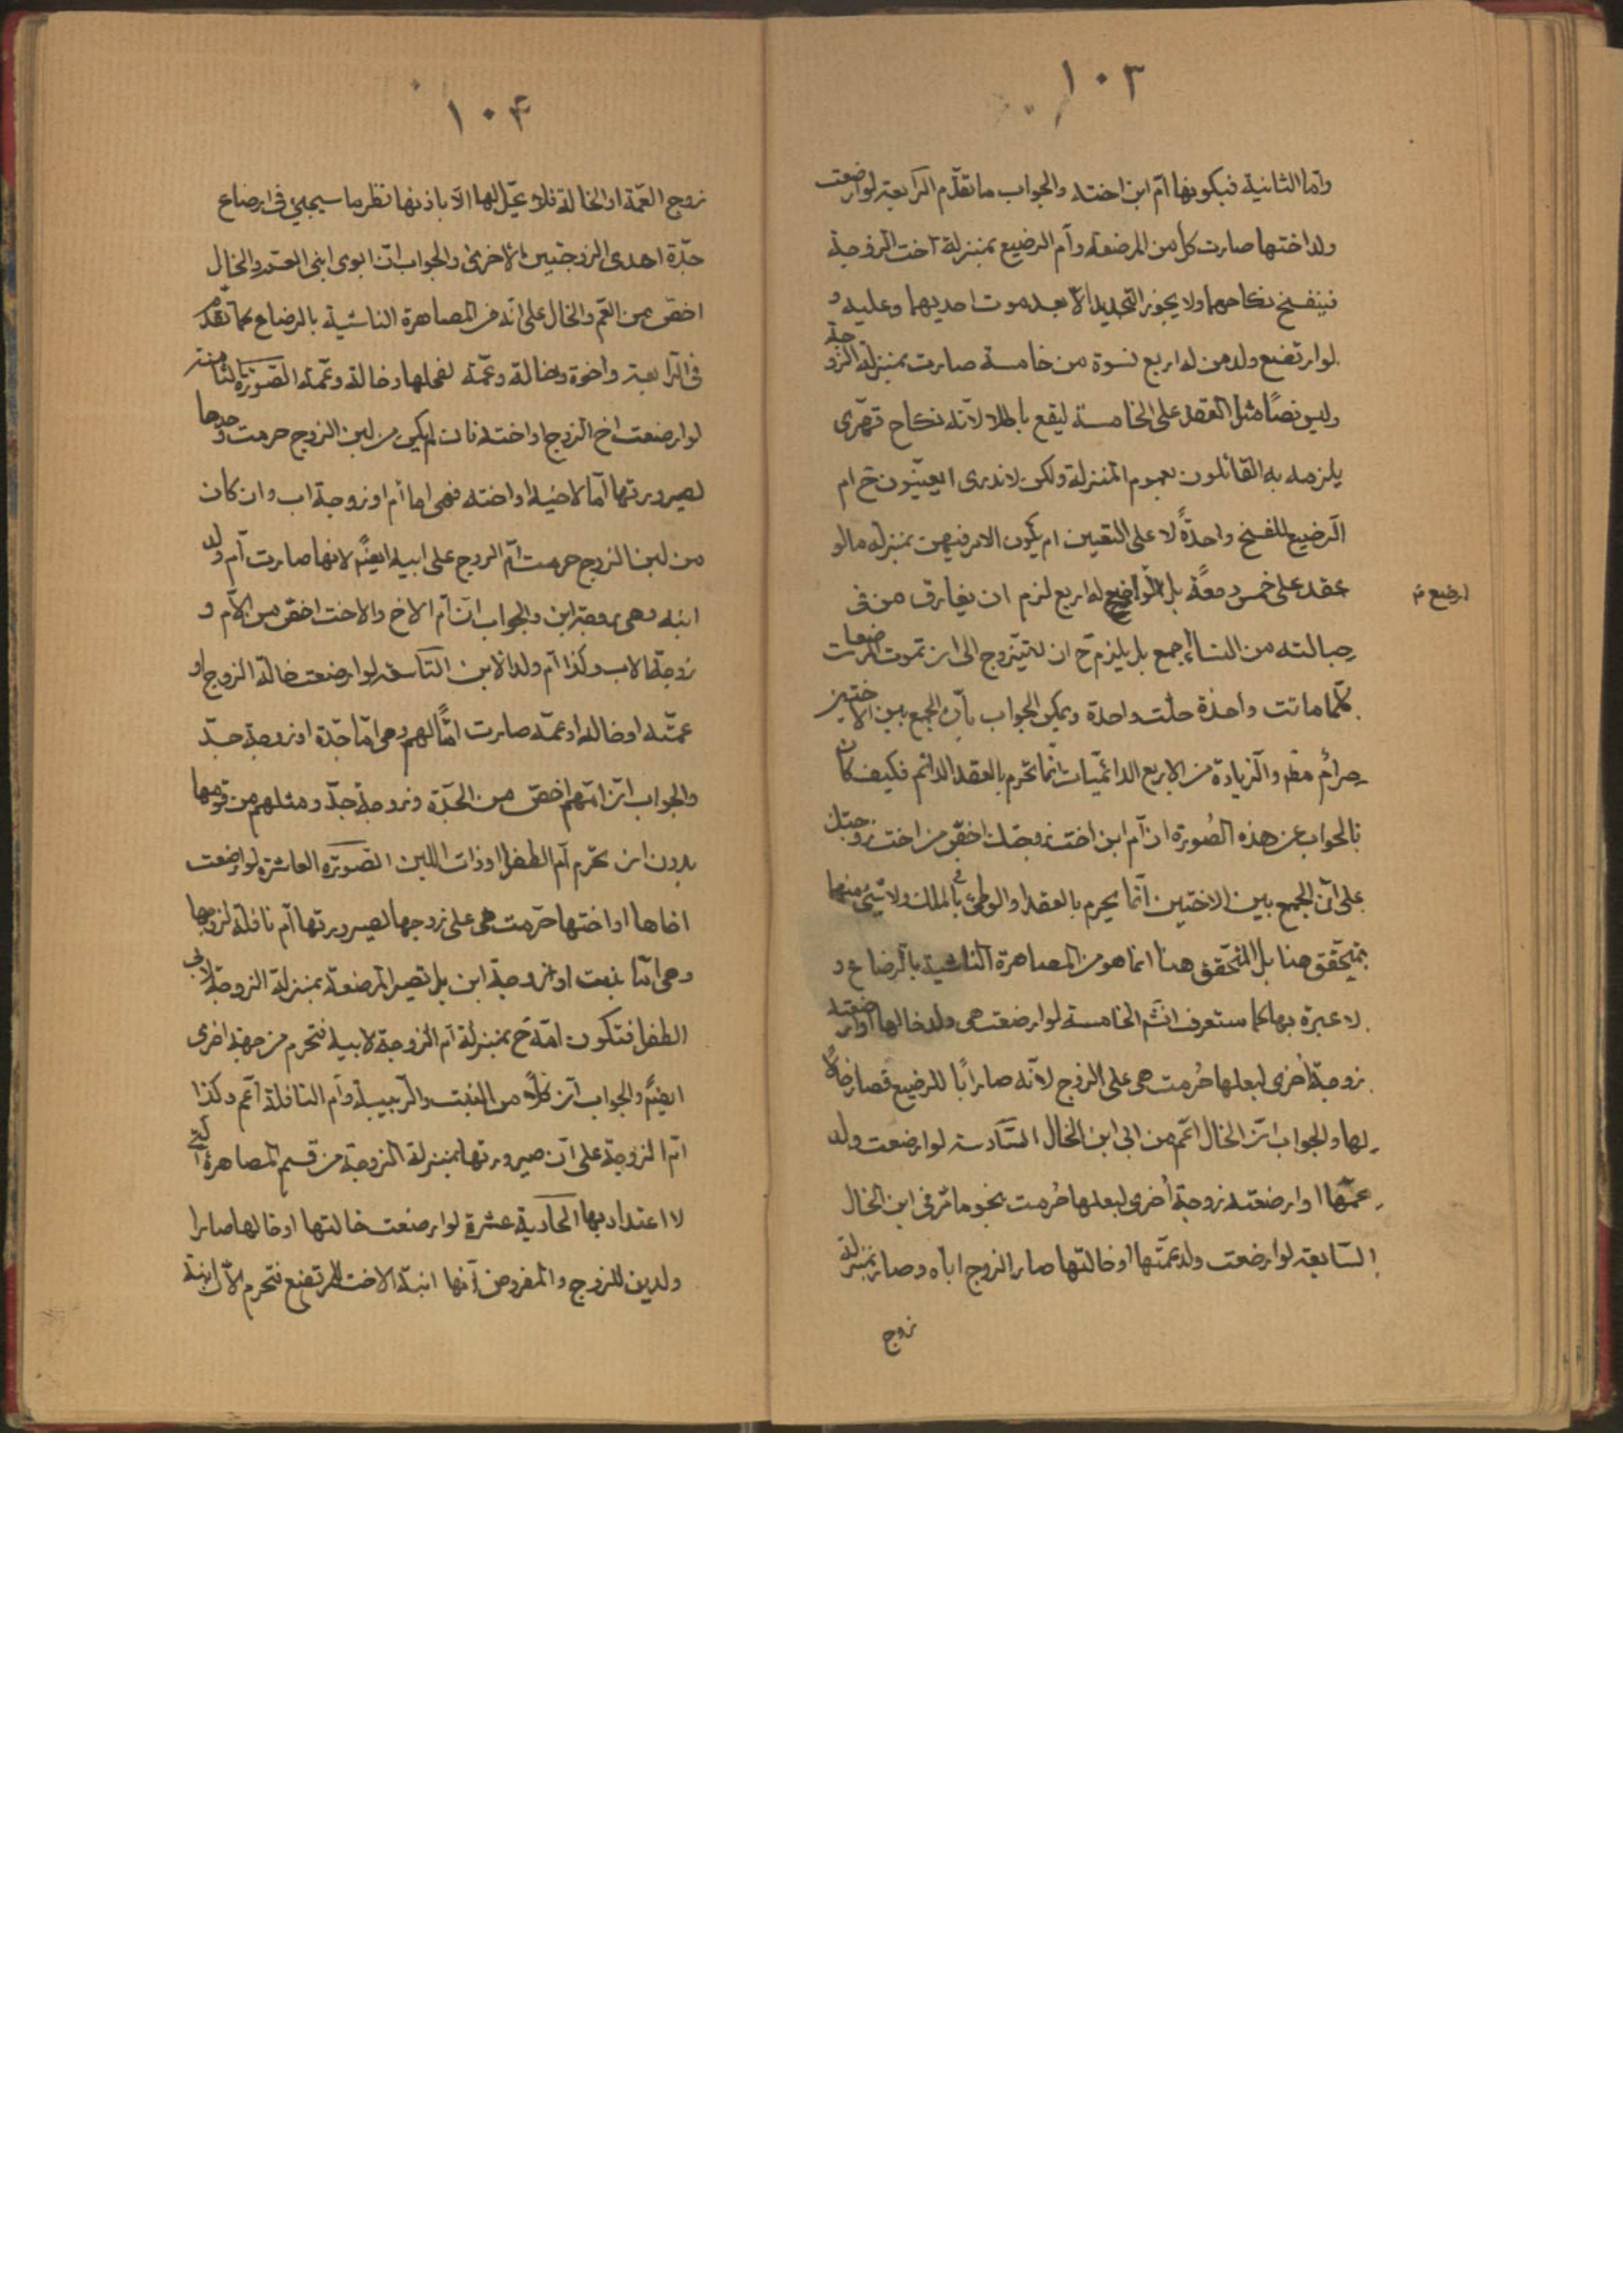 ١٠٣
واما الثانية فبكونها ام ابن اخته والجواب ما تقدم الرابعة لو ارضعت
ولد اختها صارت كل من المرضعة وام الرضيع بمنزلة اخت الزوجة
فينفسخ نكاحهما ولا يجوز التجديد الا بعد موت احديهما وعليه و
لو ارتضع ولد من له اربع نسوة من خامسة صارت بمنزلة الزوجة
وليس نصا مثل العقد على الخامسة ليقع باطلا لانه نكاح قهرى
يلزمه به القائلون بعموم المنزلة ولكن لا ندرى ايعينون ح ام
الرضيع للفسخ او واحدة لا على التعيين ام يكون الامر فيهن بمنزلة ما لو
عقد على خمس دفعة بل لو ارضع له اربع لزم ان يفارق من فى
ارضيع
حبالته من النساء اجمع بل يلزم ح ان لا يتزوج الى ان تموت المرضعات
كلما ماتت واحدة حلت واحدة ويمكن الجواب بان الجمع بين الاختين
حرام مطم والزيادة من الاربع الدائميات انما تحرم بالعقد الدائم فكيف كان
فالجواب عن هذه الصورة ان ام ابن اخت زوجتك اخص من اخت زوجتك
على ان الجمع بين الاختين انما يحرم بالعقد او الوطى بالملك ولا شئ منهما
بمتحقق هنا بل المتحقق هنا انما هو من المصاهرة الناشية بالرضاع و
لا عبرة بها كما ستعرف انش الخامسة لو ارضعت هى ولد خالها او ارضعته
زوجة اخرى لبعلها حرمت هى على الزوج لانه صار ابا للرضيع فصار خالا
لها والجواب ان الخال اعم من ابى ابن الخال السادسة لو ارضعت ولد
عمها او ارضعته زوجة اخرى لبعلها حرمت بنحو ما مر فى ابن الخال
السابعة لو ارضعت ولد عمتها او خالتها صار الزوج اباه وصار بمنزلة
زوج
١٠٤
زوج العمة او الخالة فلا تحل لها الا باذنها نظير ما سيجئ فى ارضاع
جدة احدى الزوجتين الاخرى والجواب ان ابوى ابنى العم والخال
اخص من العم والخال على انه من المصاهرة الناشية بالرضاع كما تقدم
فى الرابعة واخوة وخالة وعمة لفحلها وخالة وعمة الصورة الثامنة
لو ارضعت اخ الزوج او اخته فان لم يكن من لبن الزوج حرمت وحدها
لصيرورتها اما لاخيه او اخته فهى اما ام او زوجة اب وان كان
من لبن الزوج حرمت ام الزوج على ابيه ايضم لانها صارت ام ولد
ابنه وهى زوجة ابن والجواب ان ام الاخ والاخت اخص من الام و
زوجة الاب وكذا ام ولد الابن التاسعة لو ارضعت خالة الزوج او
عمته او خاله او عمه صارت اما لهم وهى اما جدة او زوجة جد
والجواب ان امهم اخص من الجدة وزوجة جد ومثلهم من توهمها
بدون ان تحرم ام الطفل او ذات اللبن الصورة العاشرة لو ارضعت
اخاها او اختها حرمت هى على زوجها لصيرورتها ام نافلة لزوجها
وهى اما بنت او زوجة ابن بل تصير المرضعة بمنزلة الزوجة لابى
الطفل فتكون امه ح بمنزلة ام الزوجة لابيه فتحرم من جهة اخرى
ايضم والجواب ان كلا من البنت والربيبة وام النافلة اعم وكذا
ام الزوجة على ان صيرورتها بمنزلة الزوجة من قسم المصاهرة التى
لا اعتداد بها الحادية عشرة لو ارضعت خالتها او خالها صارا
ولدين للزوج والمفروض انها ابنة الاخت للمرتضع فتحرم لان ابنة